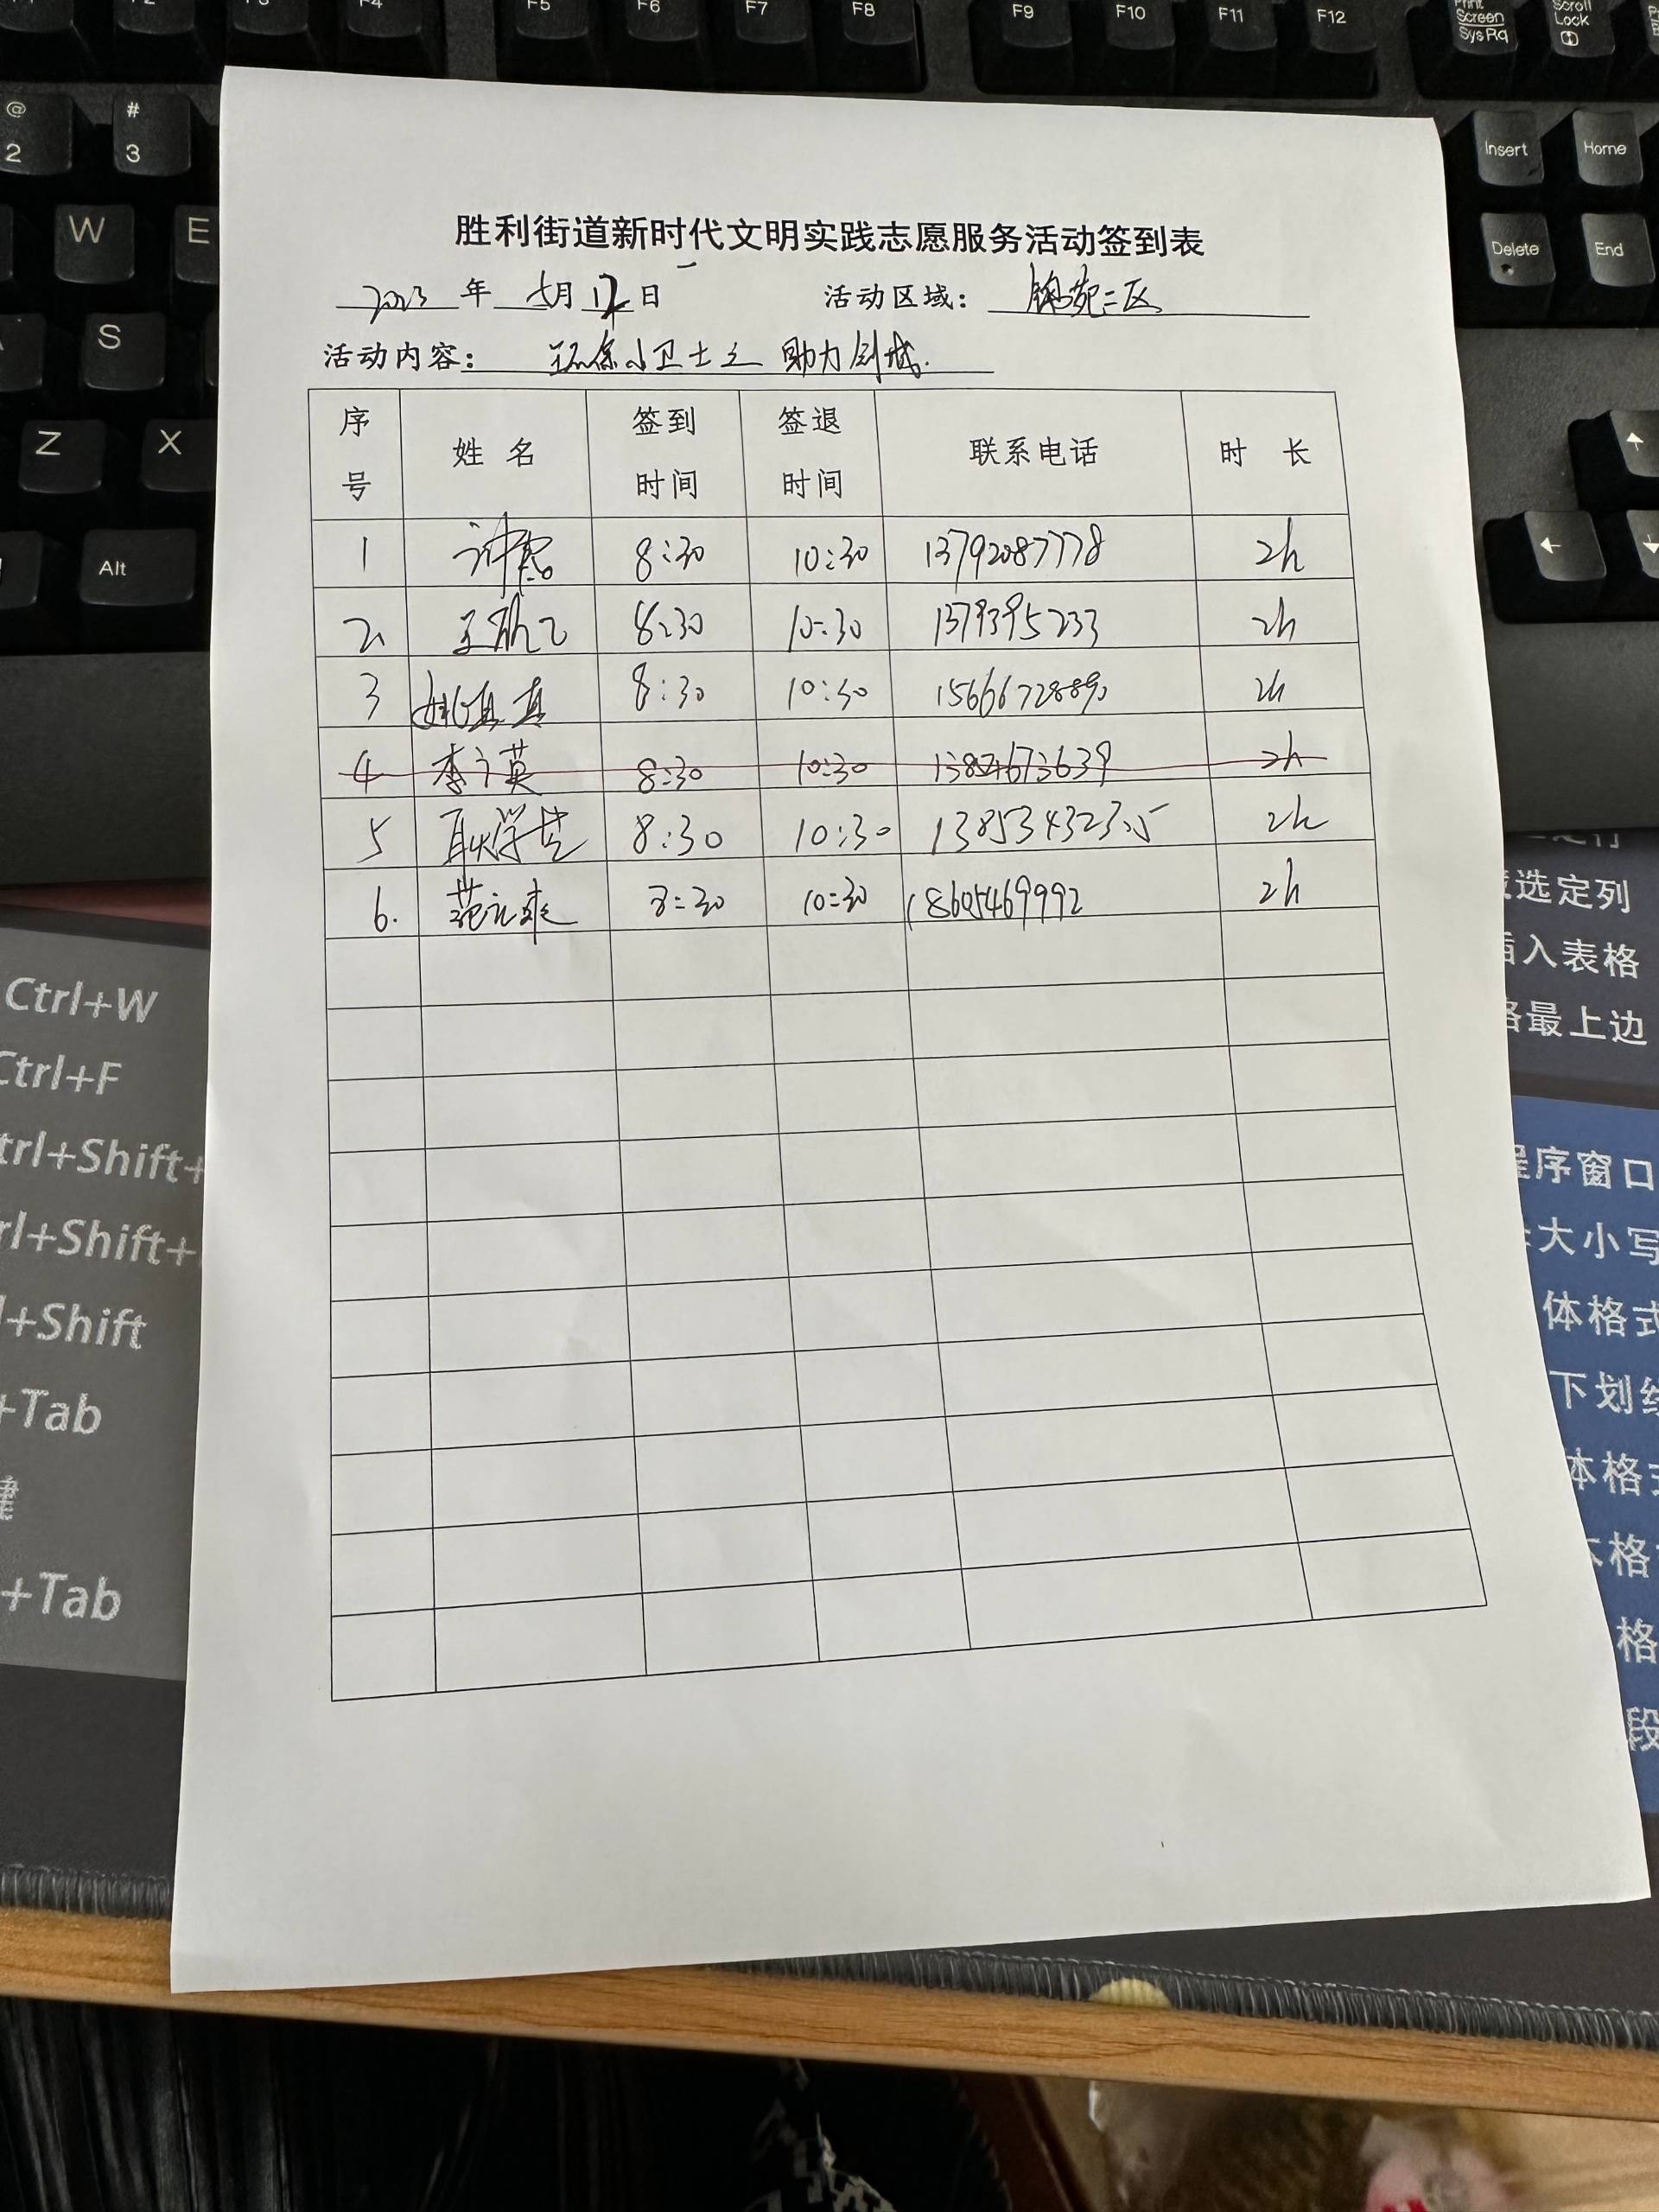 F5 F6 F7 F8 F9 F10 F11 F12 Print Screen SysRq Scroll Lock
@ 2 # 3 Insert Home
W E Delete End
S
Z X
Alt
胜利街道新时代文明实践志愿服务活动签到表
2023 年 5月 12 日 活动区域: 锦苑二区
活动内容: 环保小卫士之 助力创城.
序号 姓名 签到时间 签退时间 联系电话 时长
1 8:30 10:30 13792087778 2h
2 8:30 10:30 1379395233 2h
3 姚真真 8:30 10:30 15666728890 2h
4 李 英 8:30 10:30 2h
5 耿学芸 8:30 10:30 13853432335 2h
6. 范 8:30 10:30 18605469992 2h
Ctrl+W
Ctrl+F
Ctrl+Shift+
Ctrl+Shift+
+Shift
+Tab
键
+Tab
选定列
插入表格
格最上边
程序窗口
大小写
体格式
下划线
体格式
体格
格
段